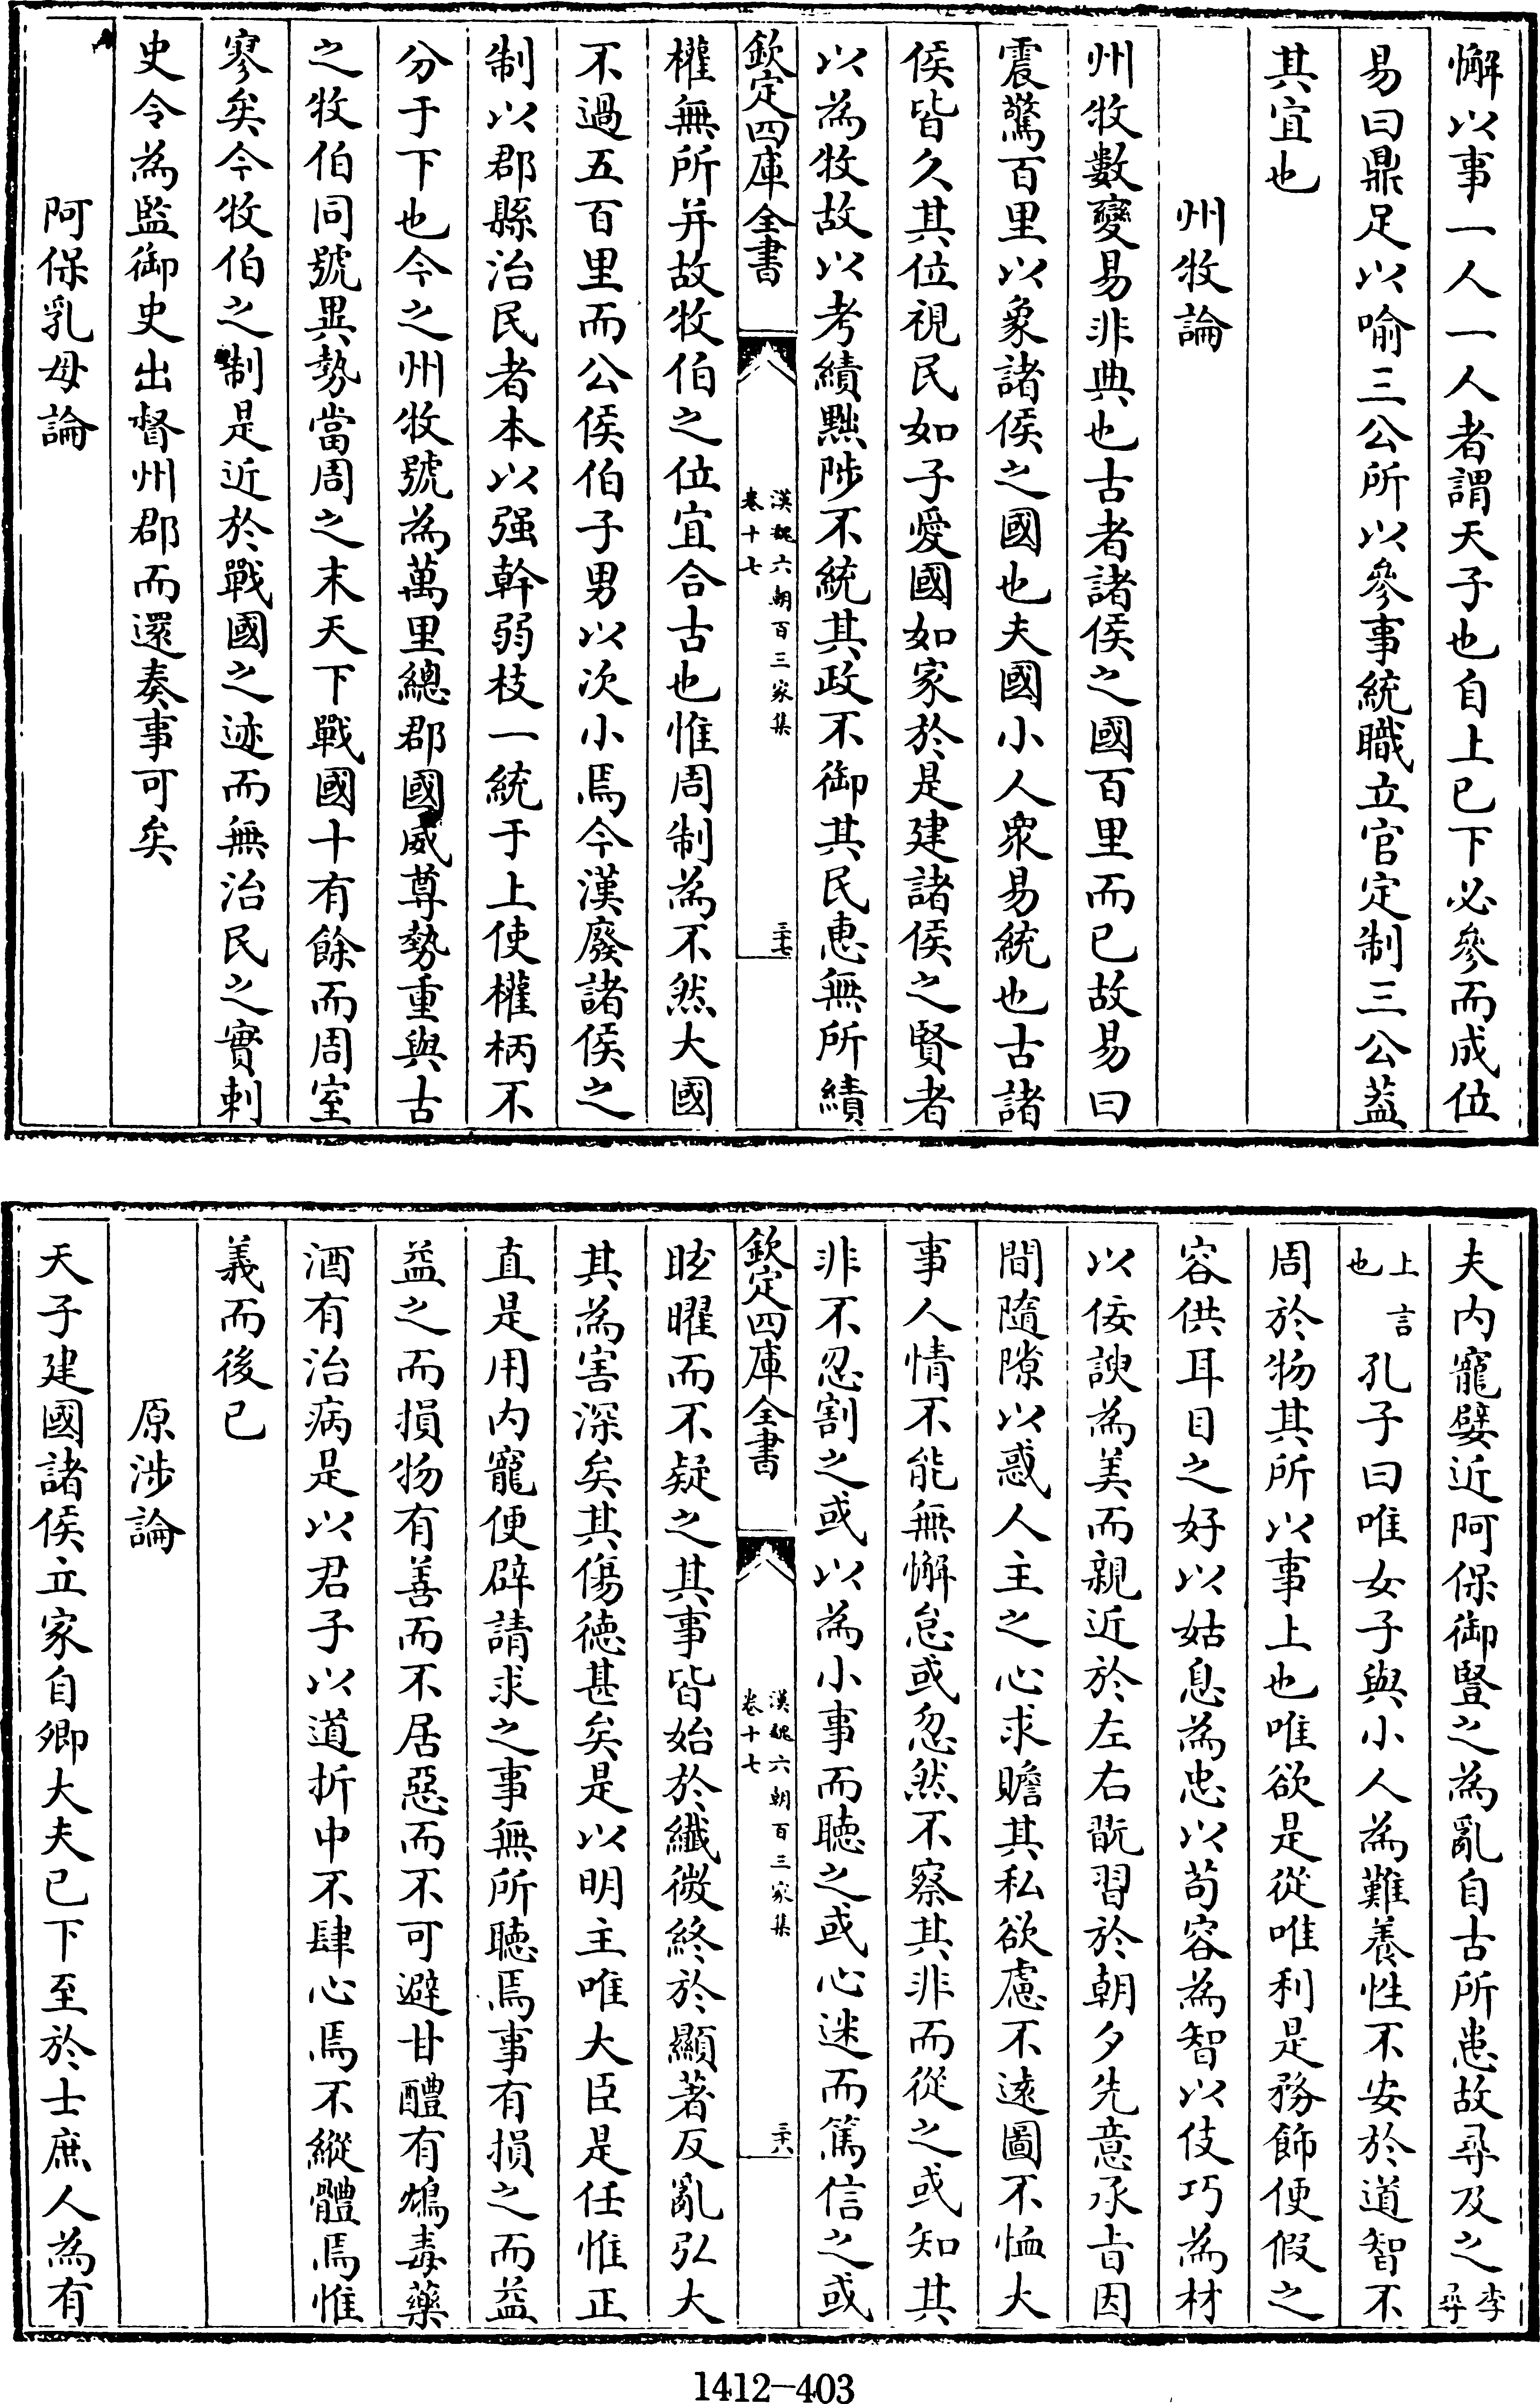 懈以事一人一人者謂天子也自上已下必參而成位
易曰鼎足以喻三公所以參事統職立官定制三公葢
其宜也
州牧論
州牧數變易非典也古者諸侯之國百里而已故易曰
震驚百里以象諸侯之國也夫國小人衆易統也古諸
侯皆久其位視民如子愛國如家於是建諸侯之賢者
以為牧故以考績黜陟不統其政不御其民惠無所績
欽定四庫全書
漢魏六朝百三家集
卷十七
三十七
權無所并故牧伯之位宜合古也惟周制為不然大國
不過五百里而公侯伯子男以次小焉今漢廢諸侯之
制以郡縣治民者本以强幹弱枝一統于上使權柄不
分于下也今之州牧號為萬里總郡國威尊勢重與古
之牧伯同號異勢當周之末天下戰國十有餘而周室
寥矣今牧伯之制是近於戰國之迹而無治民之實刺
史令為監御史出督州郡而還奏事可矣
阿保乳母論
夫内寵嬖近阿保御豎之為亂自古所患故尋及之李尋
上言也孔子曰唯女子與小人為難養性不安於道智不
周於物其所以事上也唯欲是從唯利是務飾便假之
容供耳目之好以姑息為忠以苟容為智以伎巧為材
以佞諛為美而親近於左右翫習於朝夕先意承旨因
間隨隙以惑人主之心求贍其私欲慮不遠圖不恤大
事人情不能無懈怠或忽然不察其非而從之或知其
非不忍割之或以為小事而聽之或心迷而篤信之或
欽定四庫全書
漢魏六朝百三家集
卷十七
三十八
眩曜而不疑之其事皆始於纖微終於顯著反亂弘大
其為害深矣其傷徳甚矣是以明主唯大臣是任惟正
直是用内寵便辟請求之事無所聽焉事有損之而益
益之而損物有善而不居惡而不可避甘醴有鴆毒藥
酒有治病是以君子以道折中不肆心焉不縱體焉惟
義而後已
原涉論
天子建國諸侯立家自卿大夫已下至於士庶人為有
1412-403